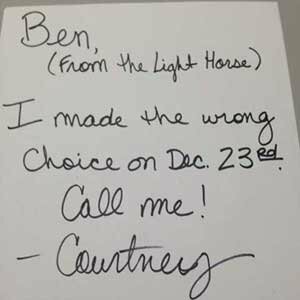 Ben,
(From the Light Horse)
I made the wrong
Choice on Dec. 23rd.
Call me!
- Courtney